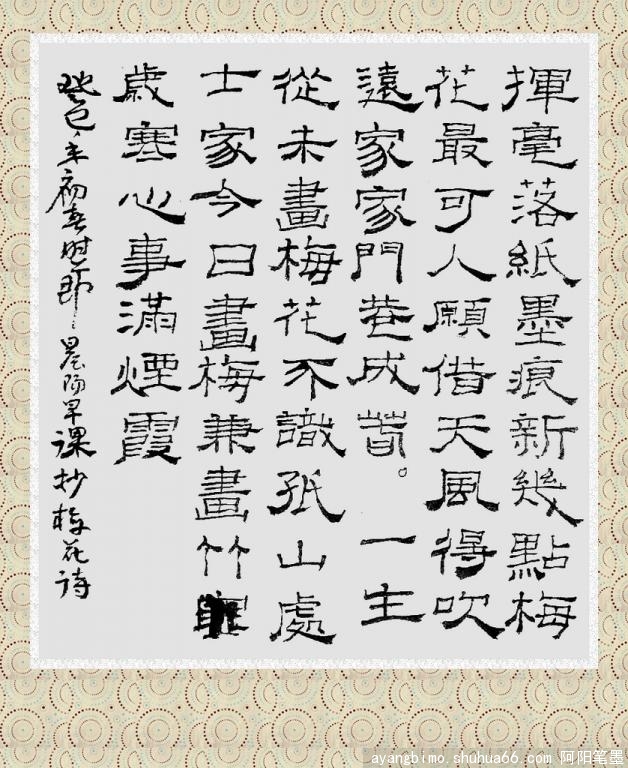 揮毫落紙墨痕新幾點梅
花最可人願借天風得吹
遠家家門巷成萅。一主
從未畫梅花不識孤山處
士家今日畫梅兼畫竹
歲寒心事滿煙霞
癸巳年初春时即晨阳早课抄梅花诗
ayangbimo.shuhua66.com 阿阳笔墨